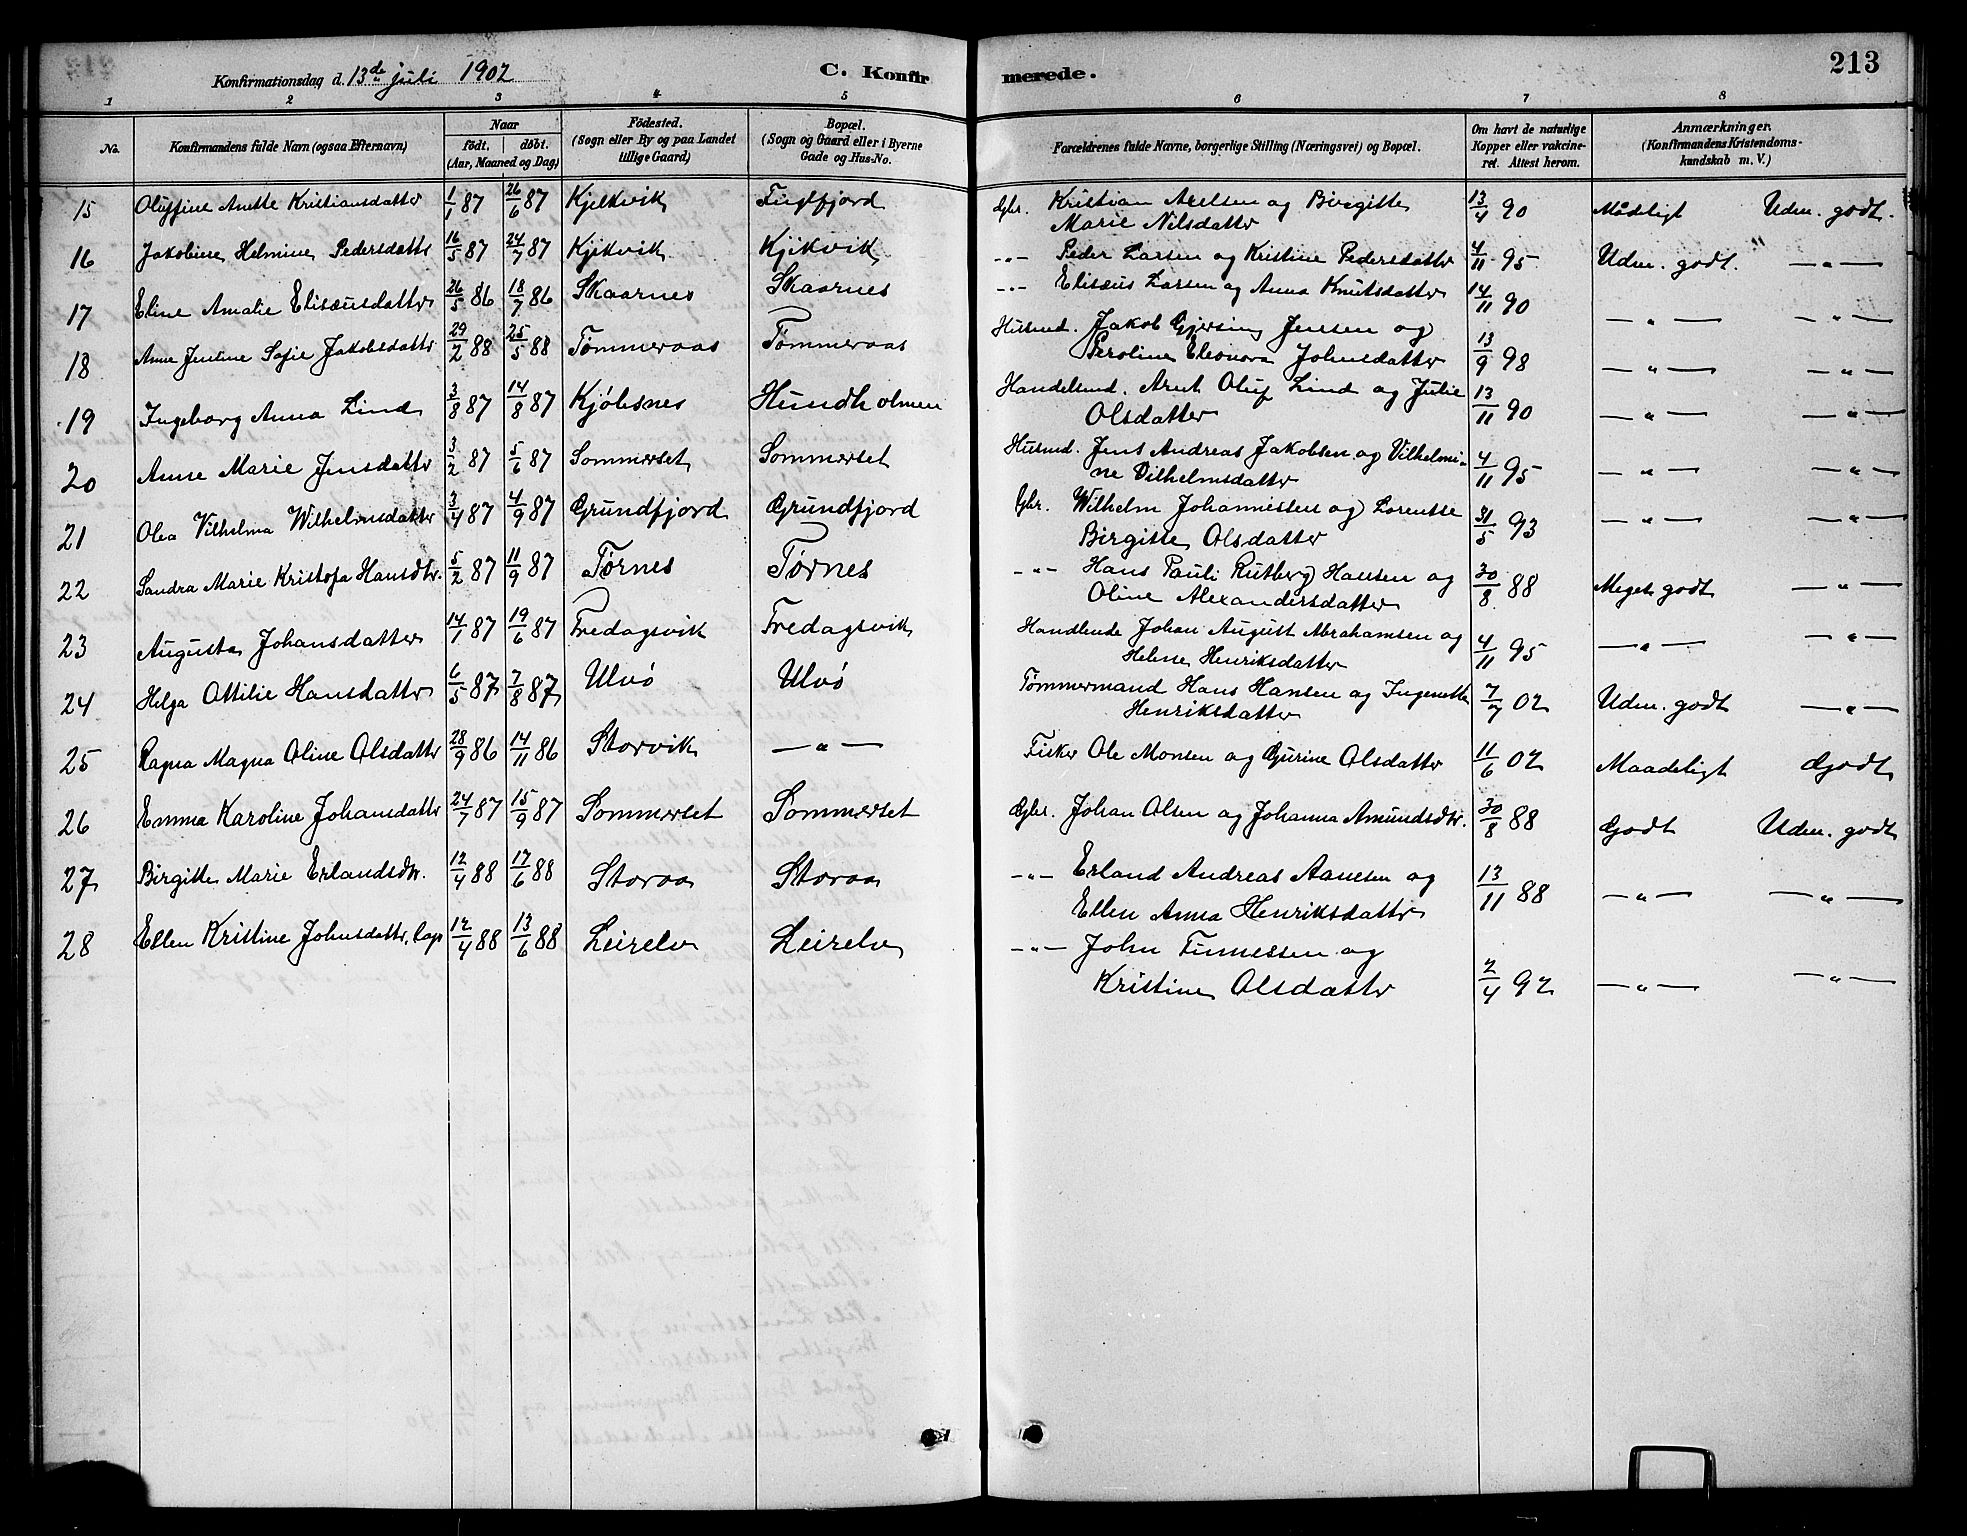 Konfirmationsdag d. 13de juli 1902
C. Konfirmerede.
213
1 2 3 4 5 6 7 8
No.
Konfirmandens fulde Navn (ogsaa Efternavn)
Naar
født, døbt.
(Aar, Maaned og Dag)
Fødested.
(Sogn eller By og paa Landet
tillige Gaard)
Bopæl.
(Sogn og Gaard eller i Byerne
Gade og Hus-No.
Forældrenes fulde Navne, borgerlige Stilling (Næringsvei) og Bopæl.
Om havt de naturlige
Kopper eller vakcine-
ret. Attest herom.
Anmærkninger.
(Konfirmandens Kristendoms-
kundskab m. V.)
15 Oluffine Anette Kristiansdatter 1/1 87 26/6 87 Kjelkvik Fuglfjord Gbr. Kristian Axelsen og Birgitte
Marie Nilsdatter 13/4 90 Mådeligt Uden. godt.
16 Jakobine Helmine Pedersdattr 16/5 87 24/7 87 Kjikvik Kjikvik -„- Peder Larsen og Kristine Pedersdatter 4/11 95 Uden. godt. -„-
17 Eline Amalie Elisæusdatter 26/5 86 18/7 86 Skaarnes Skaarnes -„- Elisæus Larsen og Anna Knutsdatter 14/11 90 -„- -„-
18 Anne Jentine Sofie Jakobsdattr 29/2 88 25/5 88 Tømmeraas Tømmeraas Husmd. Jakob Gjersing Jensen og
Peroline Eleonora Johnsdatter 13/9 98 -„- -„-
19 Ingeborg Anna Lind 3/8 87 14/8 87 Kjøbsnes Hundholmen Handelsmd. Arnt Oluf Lind og Julie
Olsdatter 13/11 90 -„- -„-
20 Anne Marie Jensdattr 3/2 87 5/6 87 Sommerset Sommerset Husmd. Jens Andreas Jakobsen og Vilhelmi-
ne Vilhelmsdatter 4/11 95 -„- -„-
21 Olea Vilhelma Wilhelmsdatter 3/4 87 4/9 87 Grundfjord Grundfjord Gbr. Wilhelm Johannessen og Lorentse
Birgitte Olsdatter 31/5 93 -„- -„-
22 Sandra Marie Kristofa Hansdtr. 5/2 87 11/9 87 Tørnes Tørnes -„- Hans Pauli Rutberg Hansen og
Oline Alexandersdatter 30/8 88 Meget godt -„-
23 Augusta Johansdatter 14/1 87 19/6 87 Fredagsvik Fredagsvik Handlende Johan August Abrahamsen og
Helene Henriksdatter 4/11 95 -„- -„-
24 Helga Ottilie Hansdattr 6/5 87 7/8 87 Ulvø Ulvø Tømmermand Hans Hansen og Ingenette
Henriksdatter 7/7 02 Uden. godt -„-
25 Ragna Magna Oline Olsdattr 28/9 86 14/11 86 Storvik -„- Fisker Ole Monsen og Gurine Olsdatter 11/6 02 Maadeligt Godt
26 Emma Karoline Johansdattr 24/7 87 15/9 87 Sommerset Sommerset Gbr. Johan Olsen og Johanna Amundsdtr. 30/8 88 Godt Uden. godt
27 Birgitte Marie Erlandsdtr. 12/4 88 17/6 88 Storaa Storaa -„- Erland Andreas Aanesen og
Ellen Anna Henriksdattr 13/11 88 -„- -„-
28 Ellen Kristine Johnsdattr, Lap 12/4 88 13/6 88 Leirelv Leirelv -„- John Finnessen og
Kristine Olsdattr 2/4 92 -„- -„-